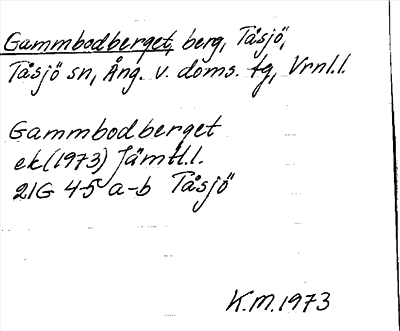 Gammbodberget, berg, Tåsjö,
Tåsjö sn, Ång. v. doms. tg, Vrnl.l.
Gammbodberget
ek(1973) Jämtl.l.
21G 4-5 a-b Tåsjö
K.M.1973